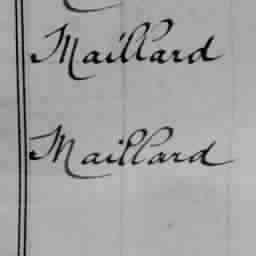 Maillard
Maillard